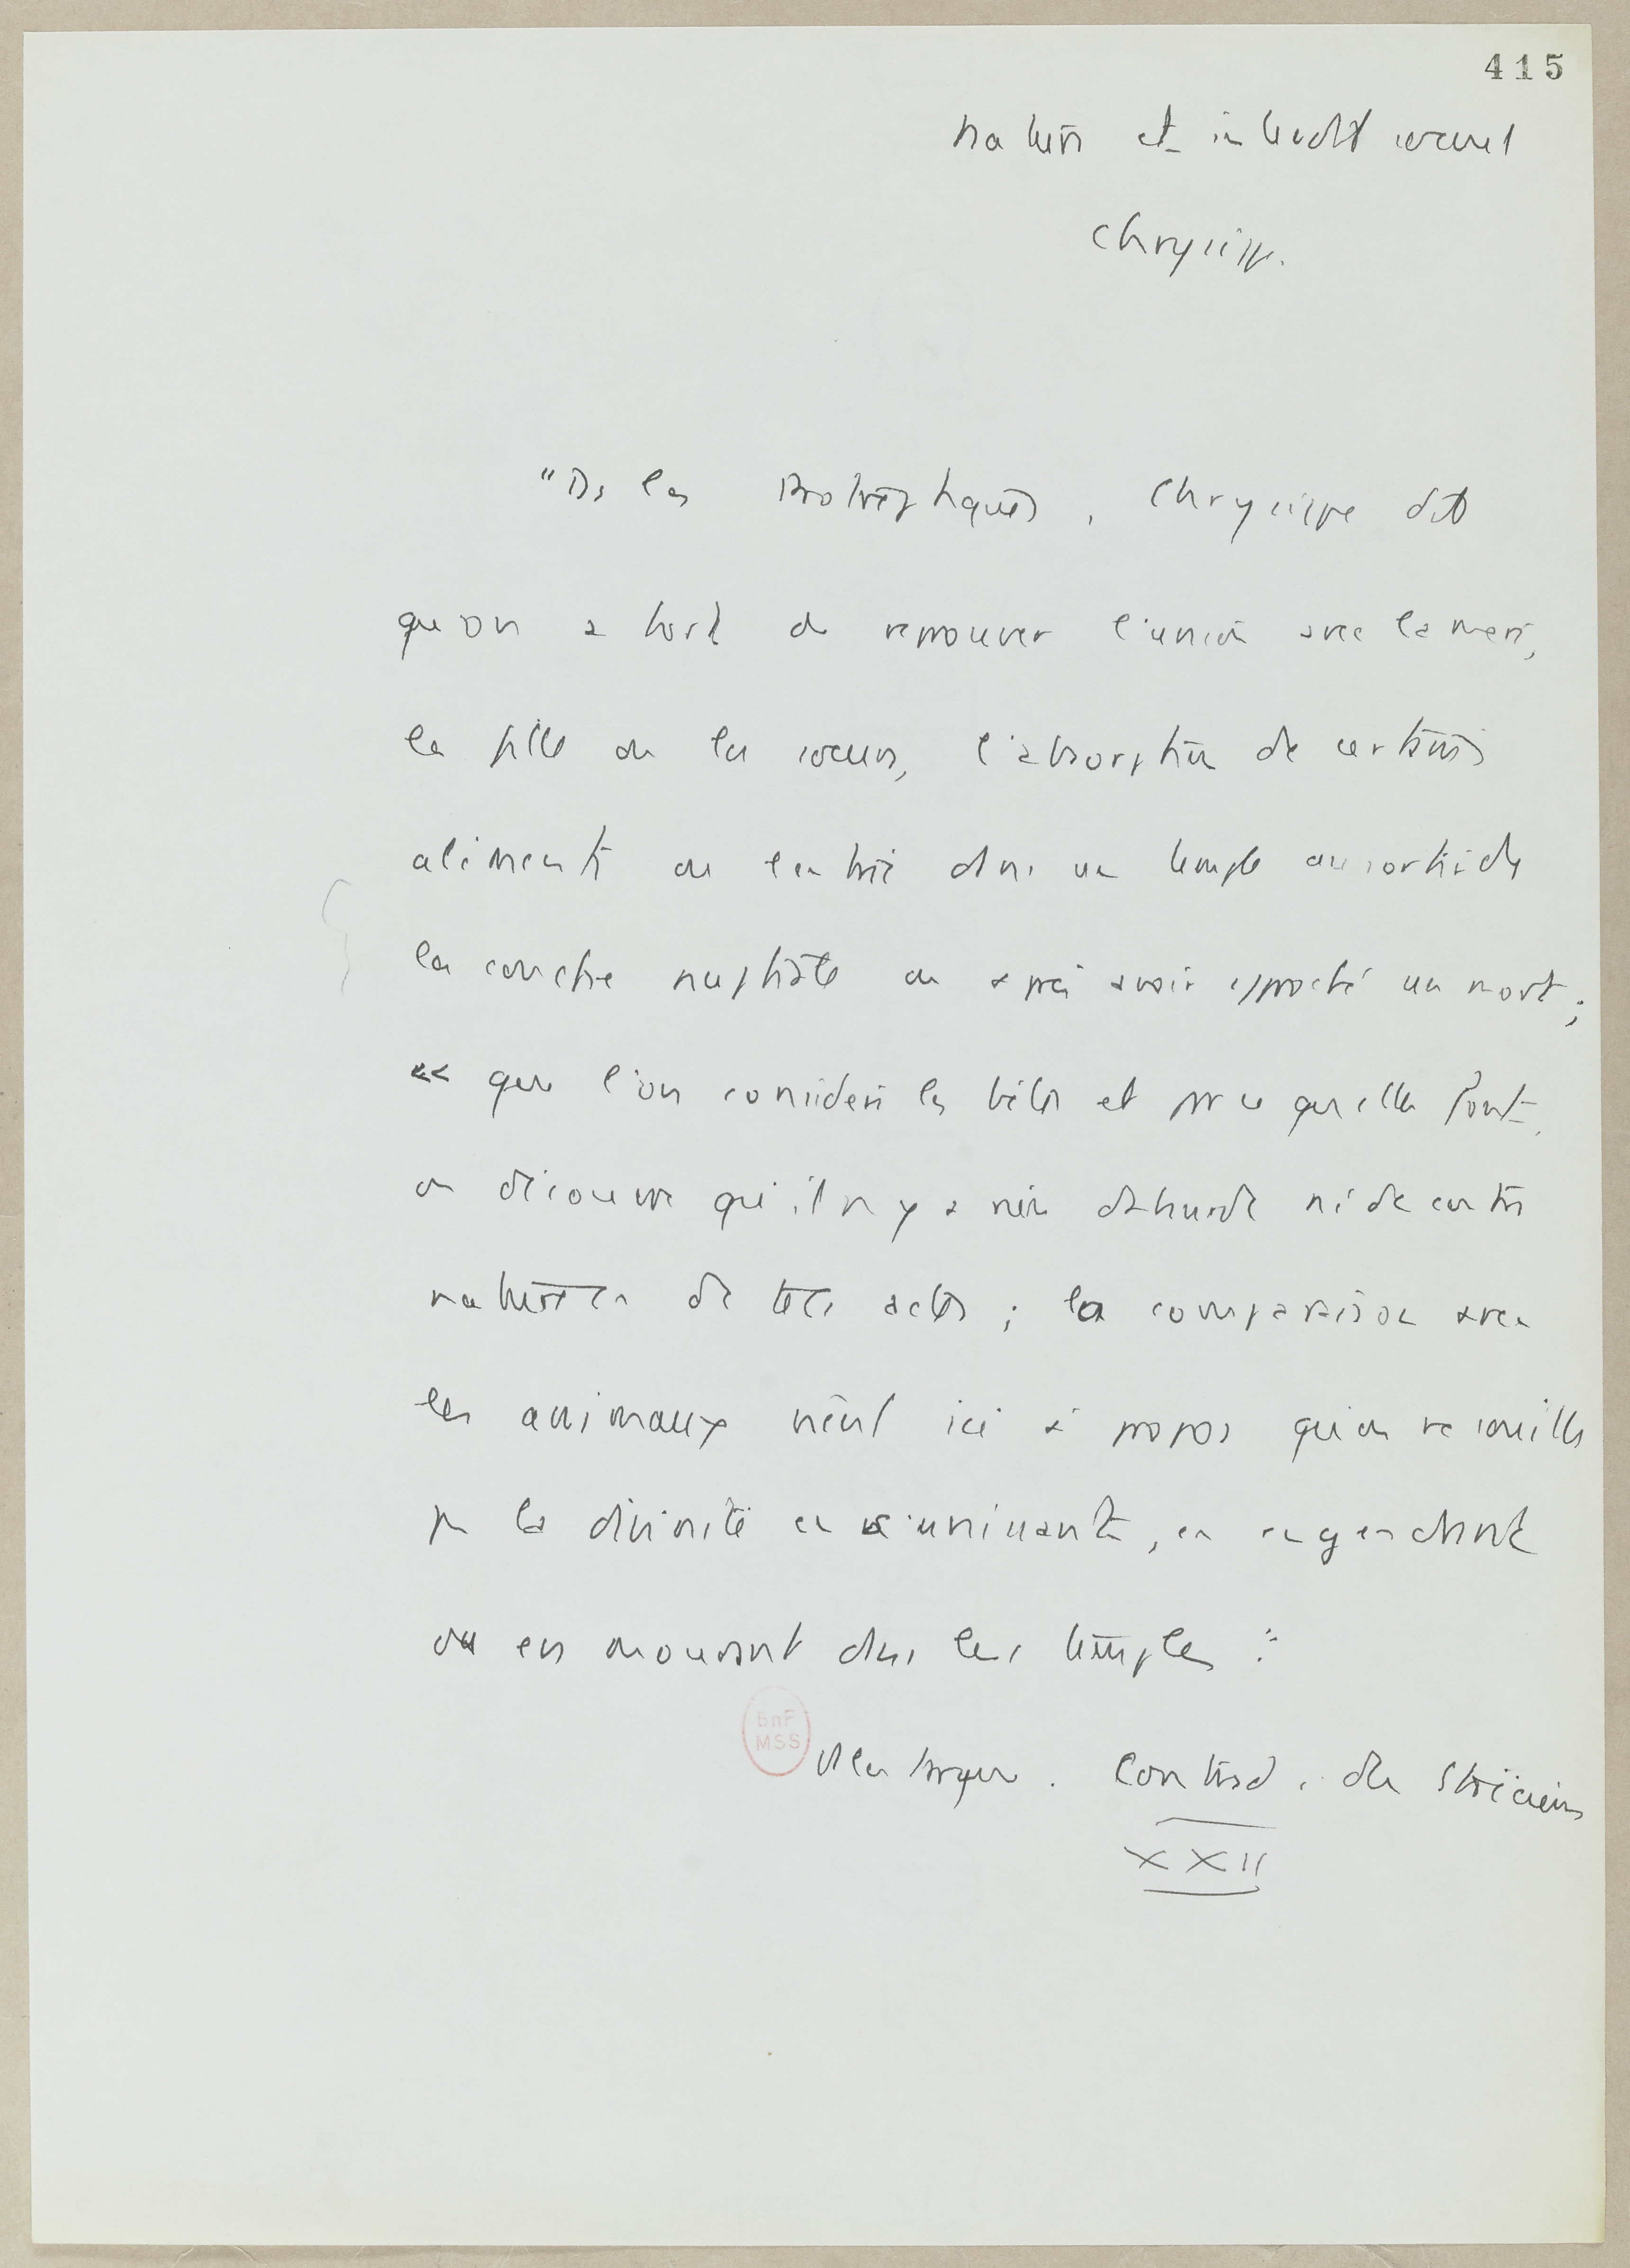 415
nature et interdit sexuel
Chrysippe.
"Ds les Protreptiques, Chrysippe dit
qu'on a tort de reprouver l'union avec la mere,
la fille ou la soeur, l'absorption de certains
aliments ou l'entrée dans un temple au sortir de
la couche nuptiale ou après avoir approché un mort;
« que l'on considère les bêtes et par ce qu'elles font
on découvre qu'il n'y a rien d'absurde ni de contre
nature en de tels actes ; la comparaison avec
les animaux vient ici à propos qu'on ne souille
pas la divinité en s'unissant, en engendrant
ou en mourant dans les temples :"
Plutarque. Contrad. des Stoïciens
XXII
BnF
MSS